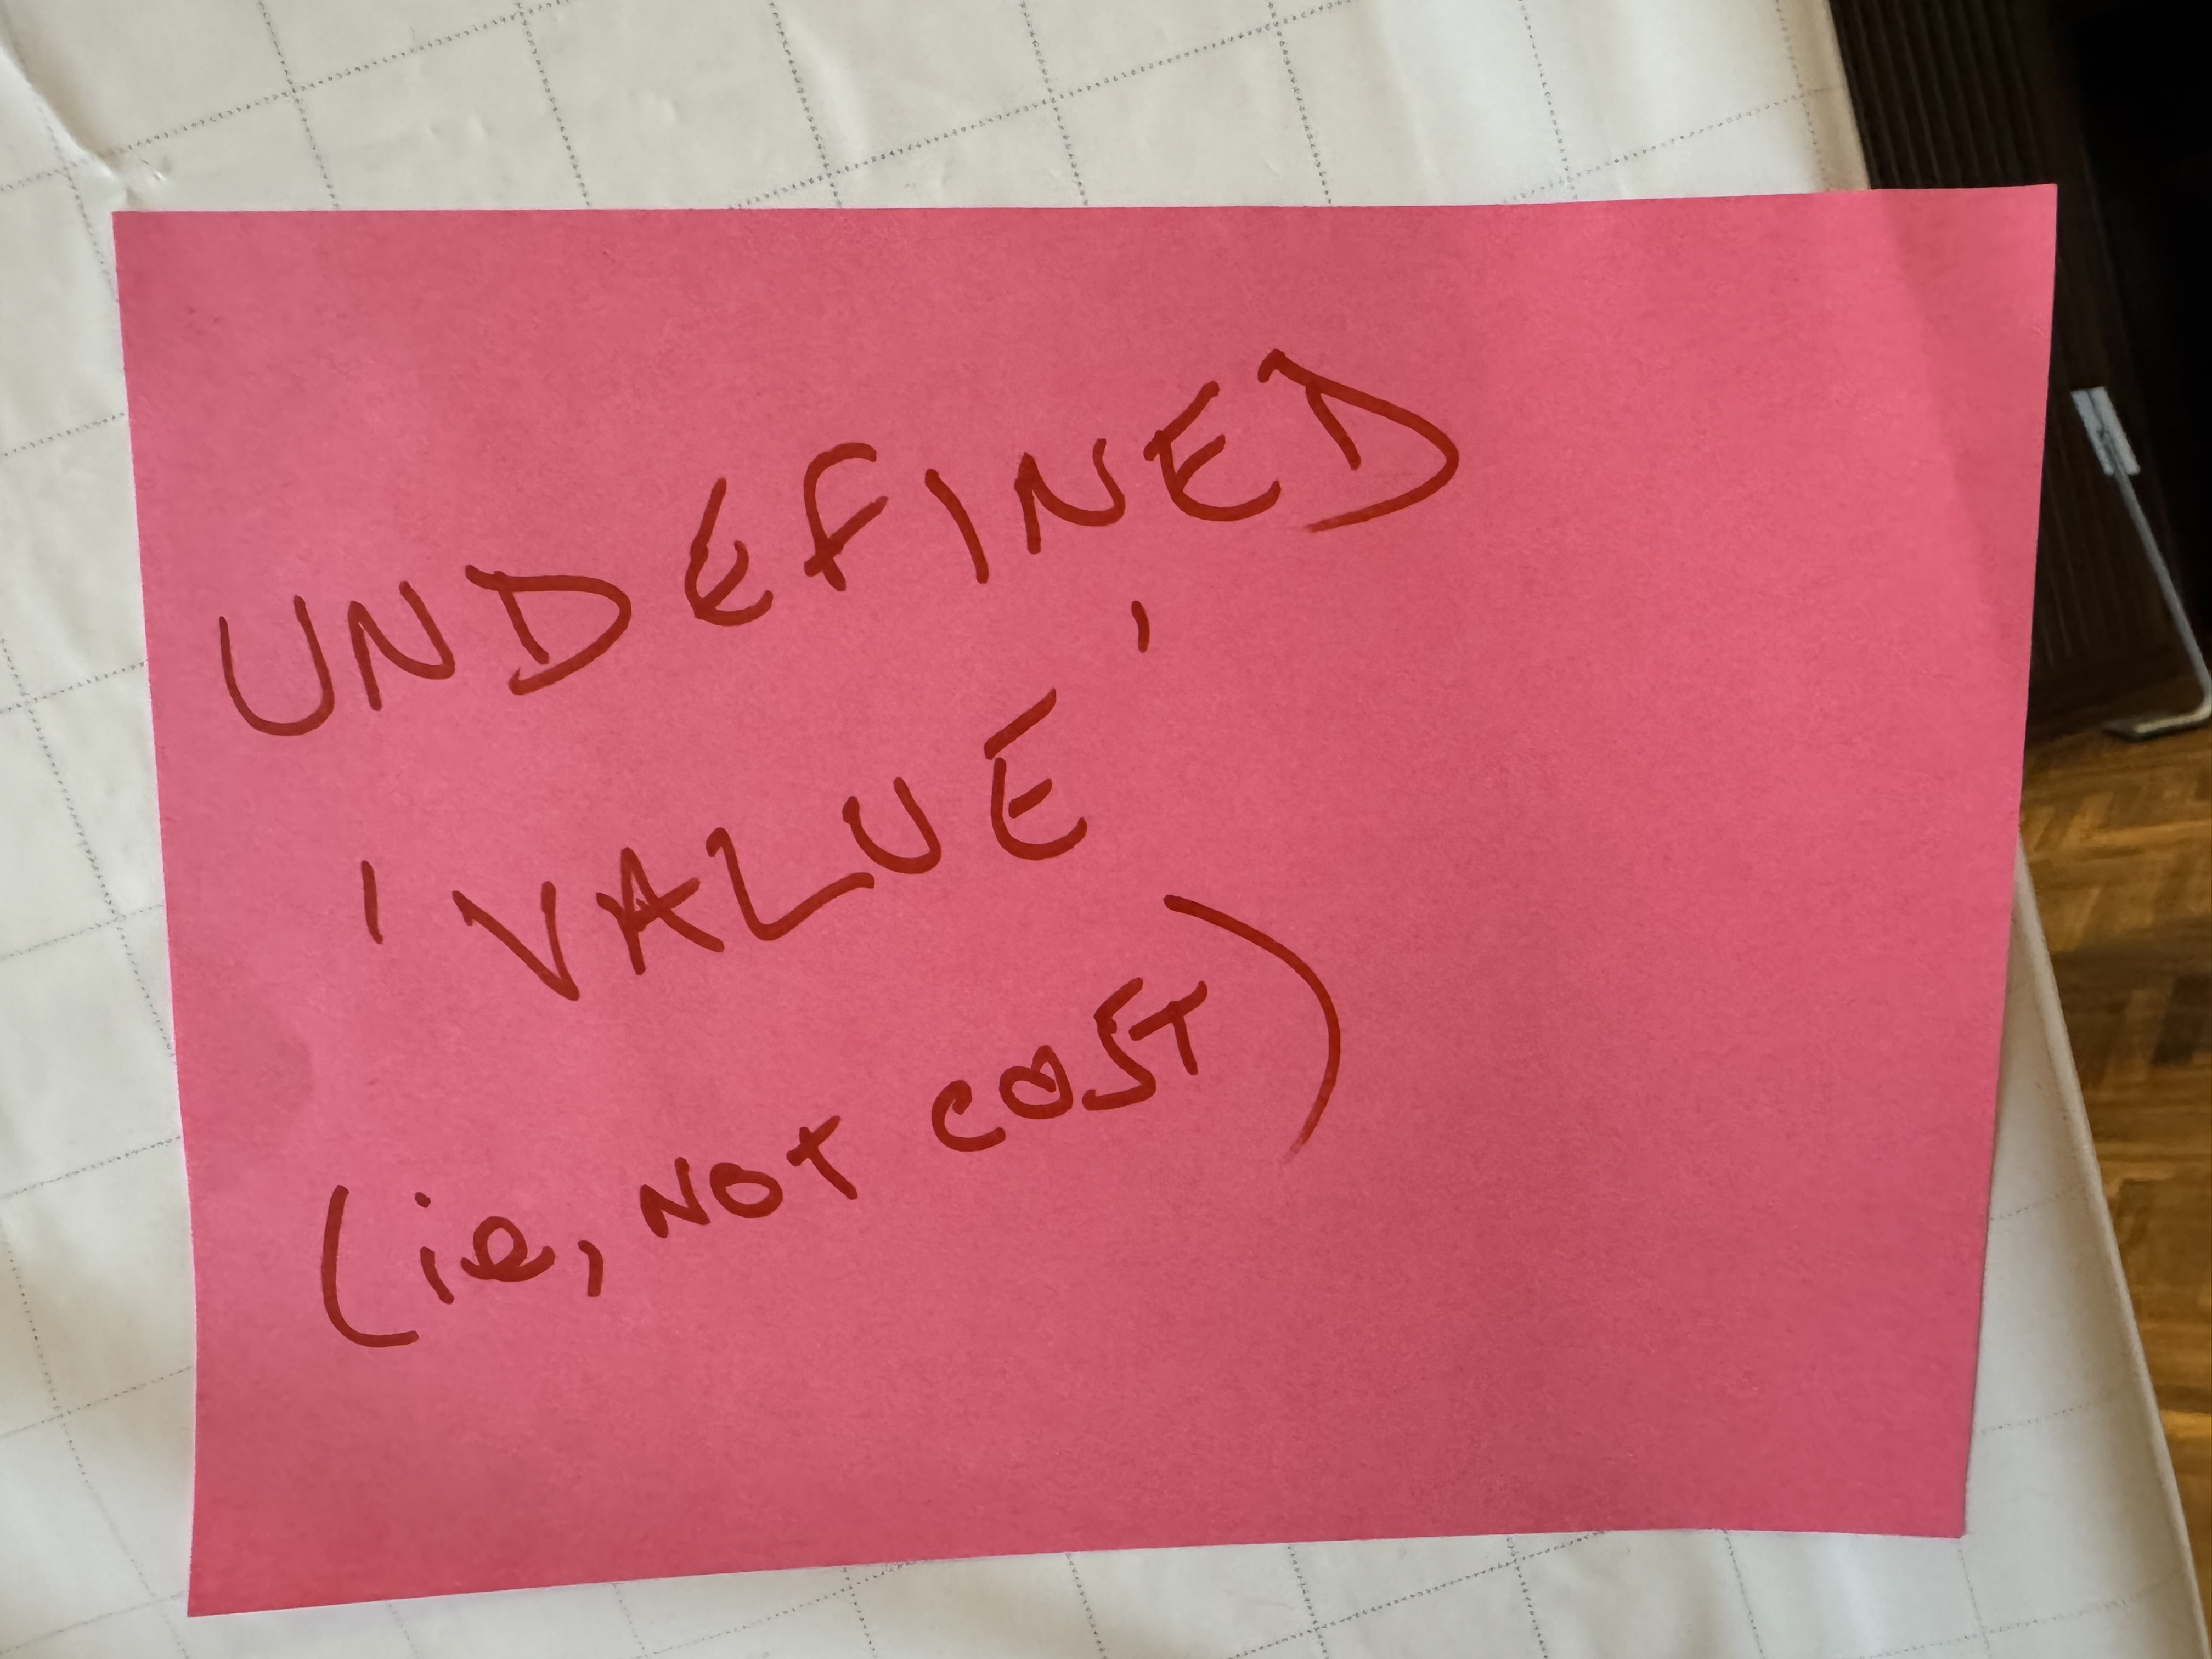 UNDEFINED
'VALUE'
(ie, NOT COST)